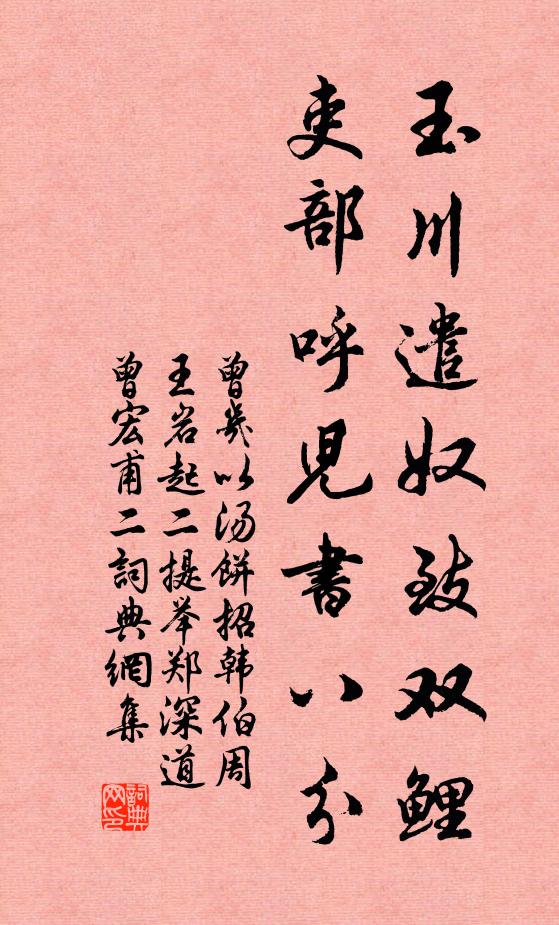 玉川遣奴致双鲤
吏部呼児書八分
曾几以汤餅招韩伯周
王岩起二提举郑深道
曾宏甫二詞典網集
詞典网印